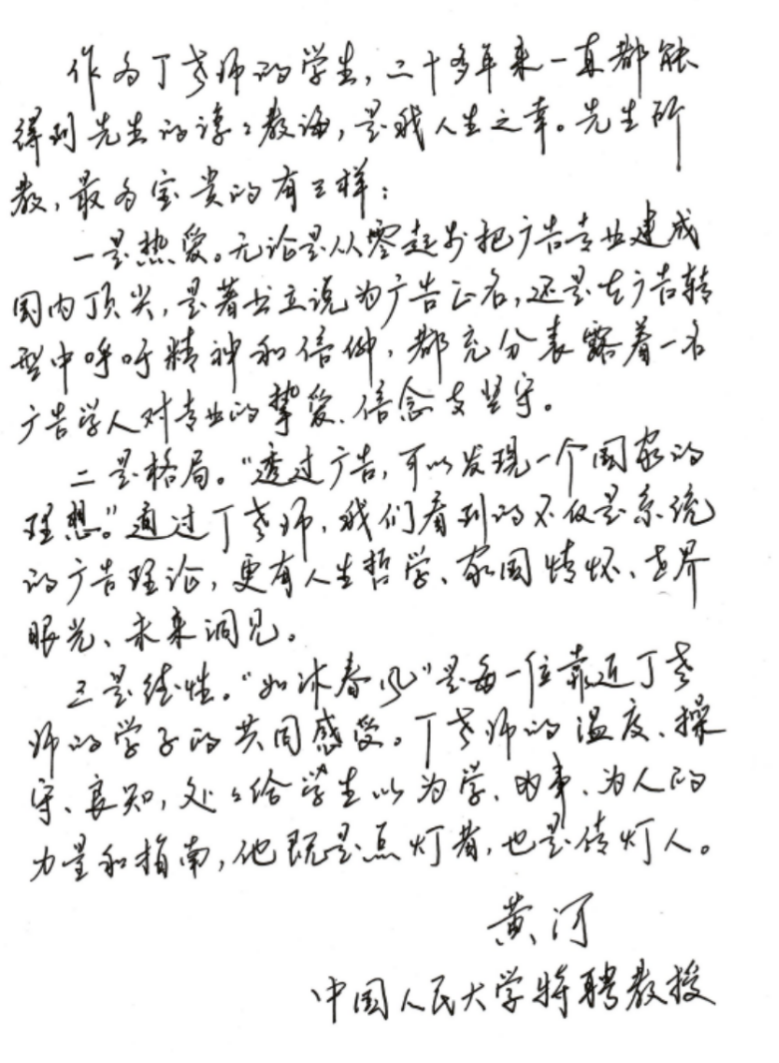 作为丁老师的学生，二十多年来一直都能
得到先生的谆々教诲，是我人生之幸。先生所
教，最为宝贵的有三样：
一是热爱。无论是从零起步把广告专业建成
国内顶尖，是著书立说为广告正名，还是在广告转
型中呼吁精神和信仰，都充分表露着一名
广告学人对专业的挚爱、信念与坚守。
二是格局。“透过广告，可以发现一个国家的
理想。”通过丁老师，我们看到的不仅是系统
的广告理论，更有人生哲学、家国情怀、世界
眼光、未来洞见。
三是德性。“如沐春风”是每一位靠近丁老
师的学子的共同感受。丁老师的温度、操
守、良知，处々给学生以为学、为事、为人的
力量和指南，他既是点灯者，也是传灯人。
黄河
中国人民大学特聘教授